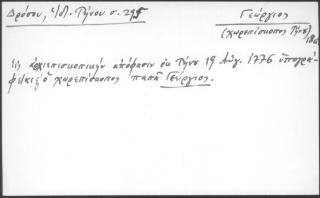 Δρόσου, Ἱστ. Τήνου σ. 295
Γεώργιος
(χωρεπίσκοπος Τήνου)
Εἰς ἀρχιεπισκοπικὴν ἀπόφασιν ἐκ Τήνου 19 Αὐγ. 1776 ὑπογρά-
φει καὶ ὁ χωρεπίσκοπος παπᾶ Γεώργιος.